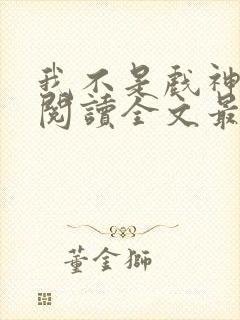 我不是戲神
閱讀全文最
董金獅